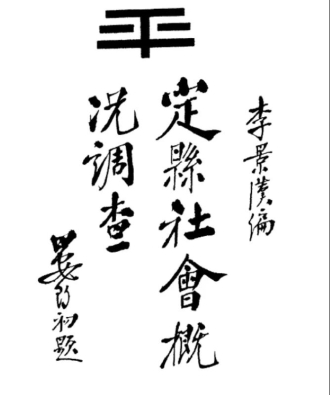 平
李景漢編
定縣社會概
況調查
晏陽初題